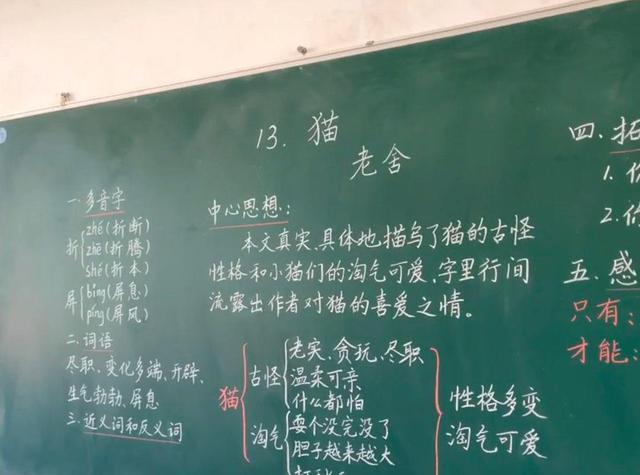 13. 猫
老舍
一.多音字
折 zhé(折断)
zhē(折腾)
shé(折本)
屏 bǐng(屏息)
píng(屏风)
二.词语
尽职、变化多端、开辟、
生气勃勃、屏息
三.近义词和反义词
中心思想:
本文真实、具体地描写了猫的古怪
性格和小猫们的淘气可爱,字里行间
流露出作者对猫的喜爱之情。
猫
古怪
老实、贪玩、尽职
温柔可亲
什么都怕
淘气
耍个没完没了
胆子越来越大
性格多变
淘气可爱
四.拓
1.
2.
五.感
只有:
才能: